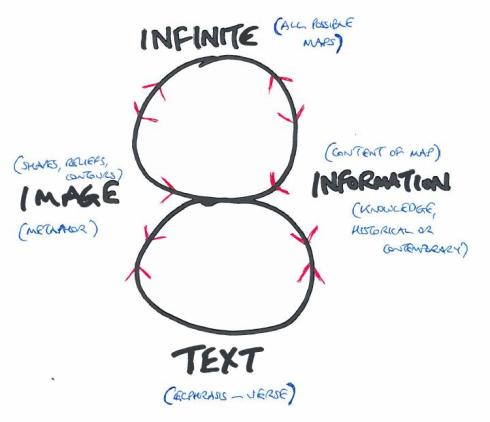 INFINITE (ALL POSSIBLE
MAPS)
(SHAPES, RELIEFS,
CONTOURS)
IMAGE
(METAPHOR)
(CONTENT OF MAP)
INFORMATION
(KNOWLEDGE,
HISTORICAL OR
CONTEMPORARY)
TEXT
(ECPHRASIS – VERSE)